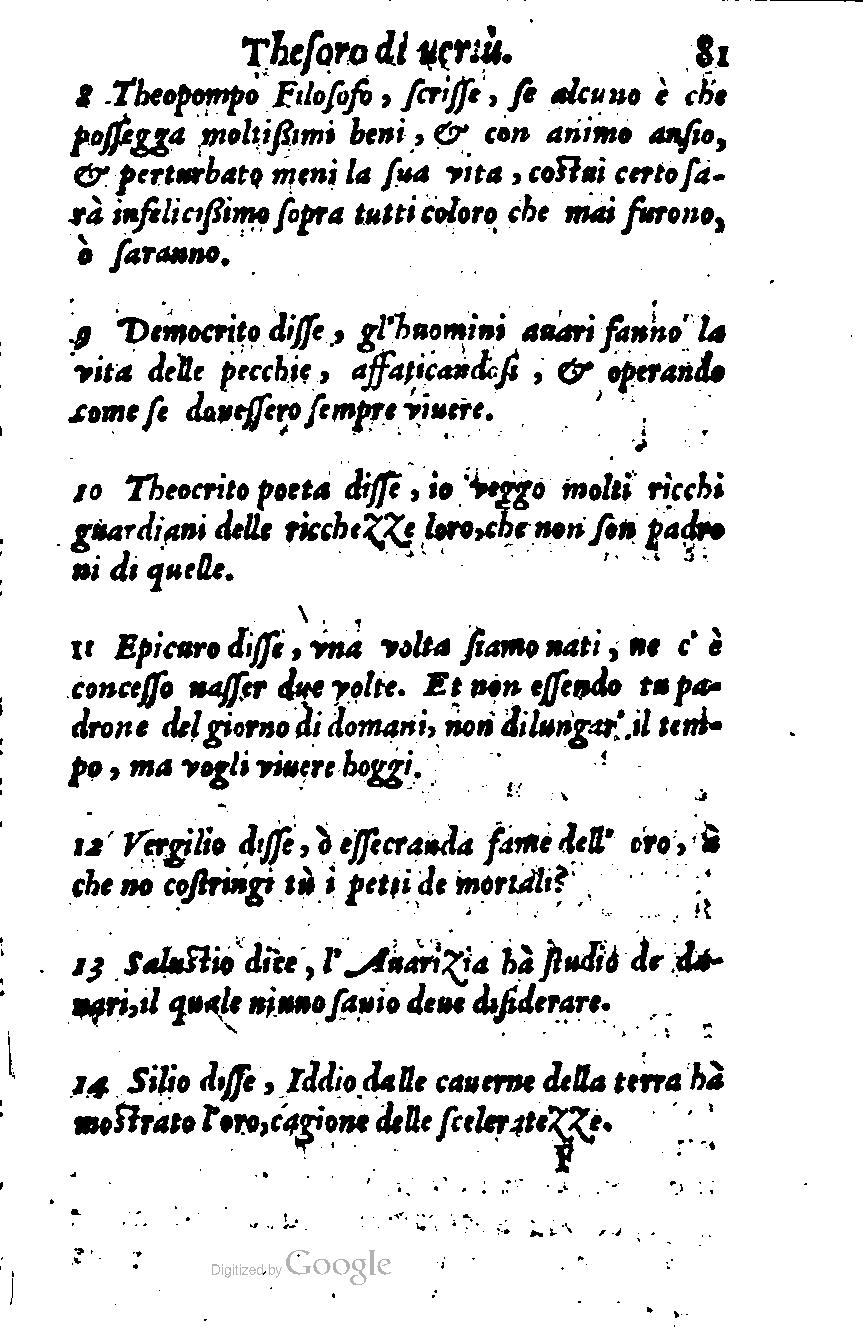 Theſoro di uertù. 81
8 Theopompo Filoſofo, ſcriſſe, ſe alcuno è che
poſſegga moltißimi beni, & con animo anſio,
& perturbato meni la ſua vita, coſtui certo ſa-
rà infeliciſßimo ſopra tutti coloro che mai furono,
ò ſaranno.
9 Democrito diſſe, gl'huomini auari fanno la
vita delle pecchie, affaticandoſi, & operando
come ſe doueſſero ſempre viuere.
10 Theocrito poeta diſſe, io veggo molti ricchi
guardiani delle ricchezze loro, che non ſon padro
ni di quelle.
11 Epicuro diſſe, vna volta ſiamo nati, ne c'è
conceſſo naſſer due volte. Et non eſſendo tu pa-
drone del giorno di domani, non dilungar' il tem-
po, ma vogli viuere hoggi.
12 Vergilio diſſe, ò eſſecranda fame dell' oro, à
che no coſtringi tù i petti de mortali?
13 Saluſtio dice, l' Auarizia hà ſtudio de da-
nari, il quale niuno ſauio deue diſiderare.
14 Silio diſſe, Iddio dalle cauerne della terra hà
moſtrato l'oro, cagione delle ſceleratezze.
F
Digitized by Google